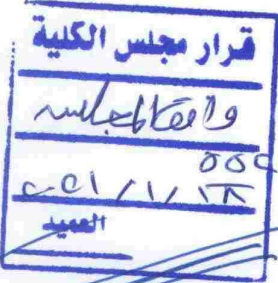 قرار مجلس الكلية
وافق المجلس
٥٥٢
العميد